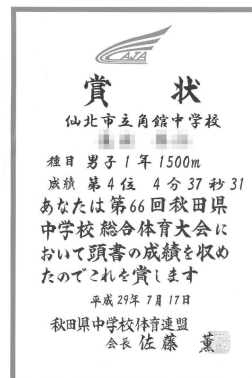 CAJA
賞 状
仙北市立角館中学校
種目 男子1年1500m
成績 第4位 4分37秒31
あなたは第66回秋田県
中学校総合体育大会に
おいて頭書の成績を収め
たのでこれを賞します
平成29年7月17日
秋田県中学校体育連盟
会長 佐藤 薫